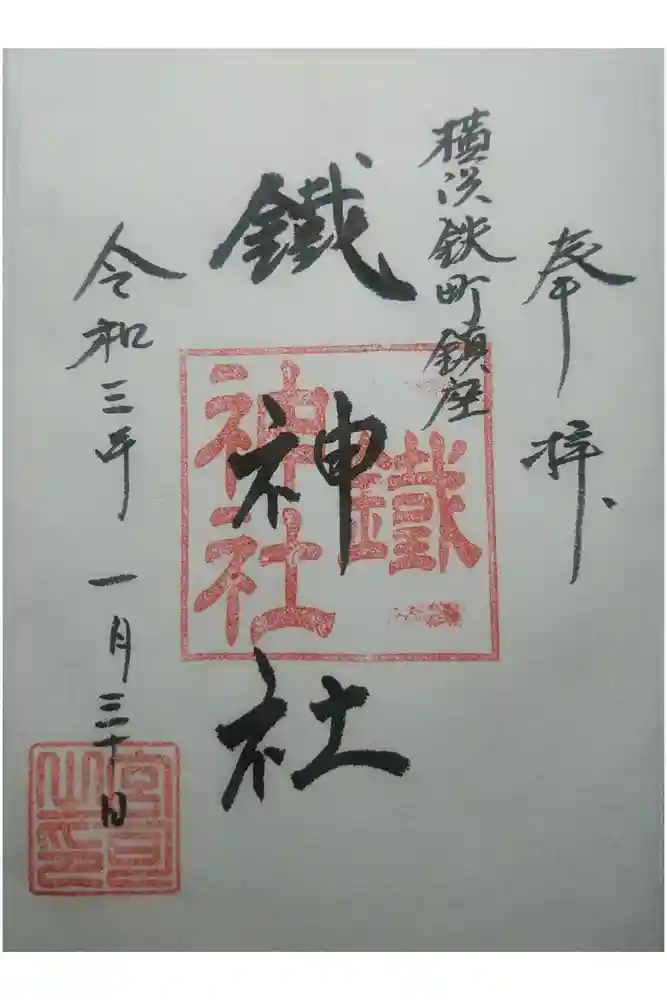 奉拝
横浜鉄町鎮座
鐵神社
鐵
神社
令和三年一月三十日
宮司
之印